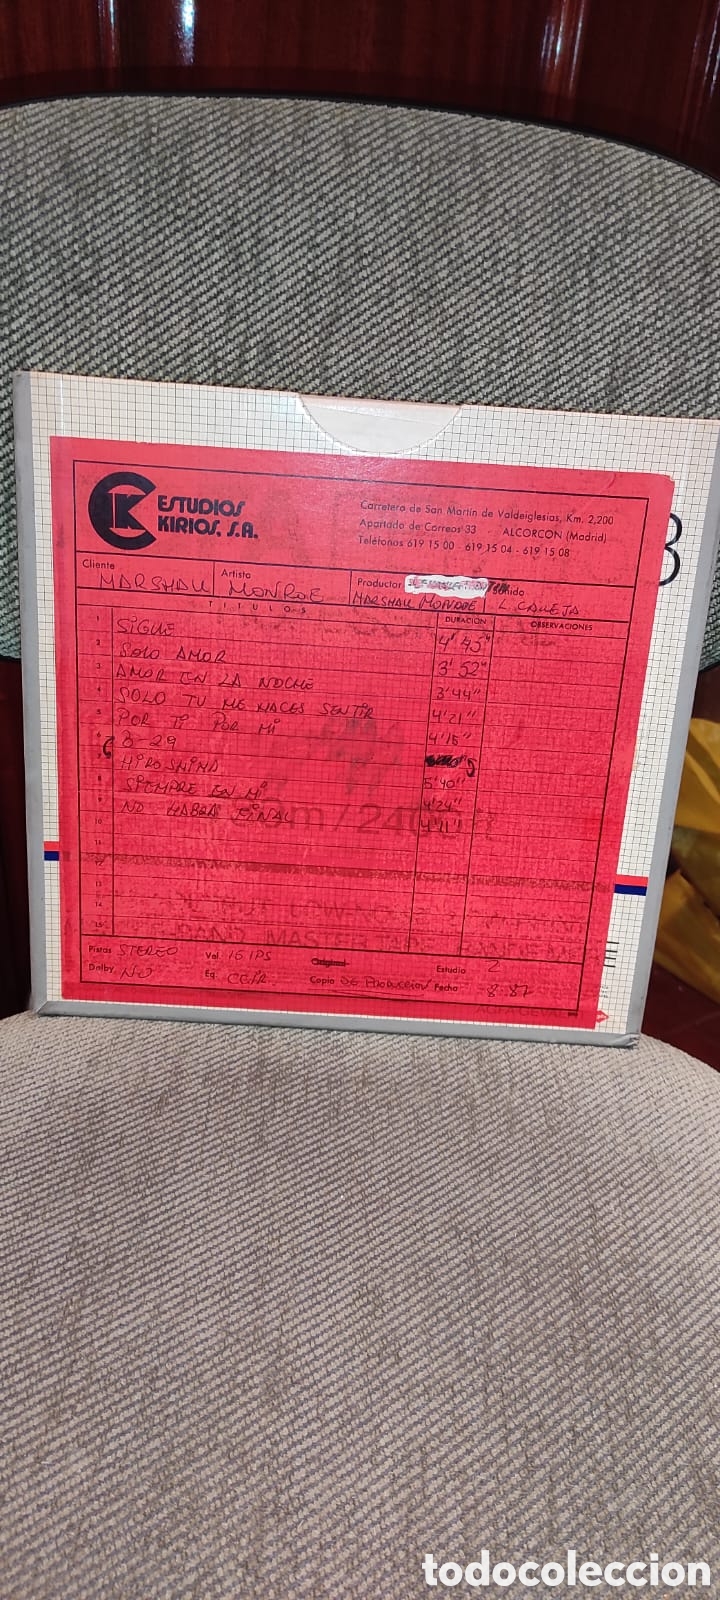 ESTUDIOS
KIRIOS, S.A.
Carretera de San Martín de Valdeiglesias, Km. 2,200
Apartado de Correos 33 ALCORCON (Madrid)
Teléfonos 619 15 00 - 619 15 04 - 619 15 08
Cliente MARSHALL Artista MONROE Productor MARSHALL MONROE Sonido L CALLEJA
TITULOS DURACION OBSERVACIONES
1 SIGUE 4' 45"
2 SOLO AMOR 3' 52"
3 AMOR EN LA NOCHE 3'44"
4 SOLO TU ME HACES SENTIR 4'21"
5 POR TI POR MI 4'15"
6 B-29
7 HIROSHIMA 5'40"
8 SIEMPRE EN MI 4'24"
9 NO HABRA FINAL 4'11"
10
11
12
13
14
15
Pistas STEREO Vel. 15 IPS Original Estudio 2
Dolby NO Eq. CCIR Copia DE PRODUCCION Fecha 8-87
AGFA-GEVAERT
todocoleccion